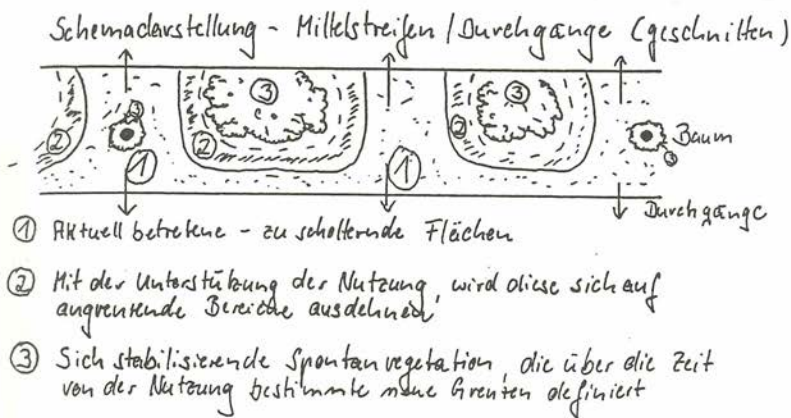 Schemadarstellung - Mittelstreifen / Durchgänge (geschnitten)
3 3
2 3 2 Baum
1 2 1 3
Durchgänge
1 Aktuell betretene - zu schotternde Flächen
2 Mit der Unterstützung der Nutzung, wird diese sich auf
angrenzende Bereiche ausdehnen
3 Sich stabilisierende Spontanvegetation, die über die Zeit
von der Nutzung bestimmte neue Grenzen definiert